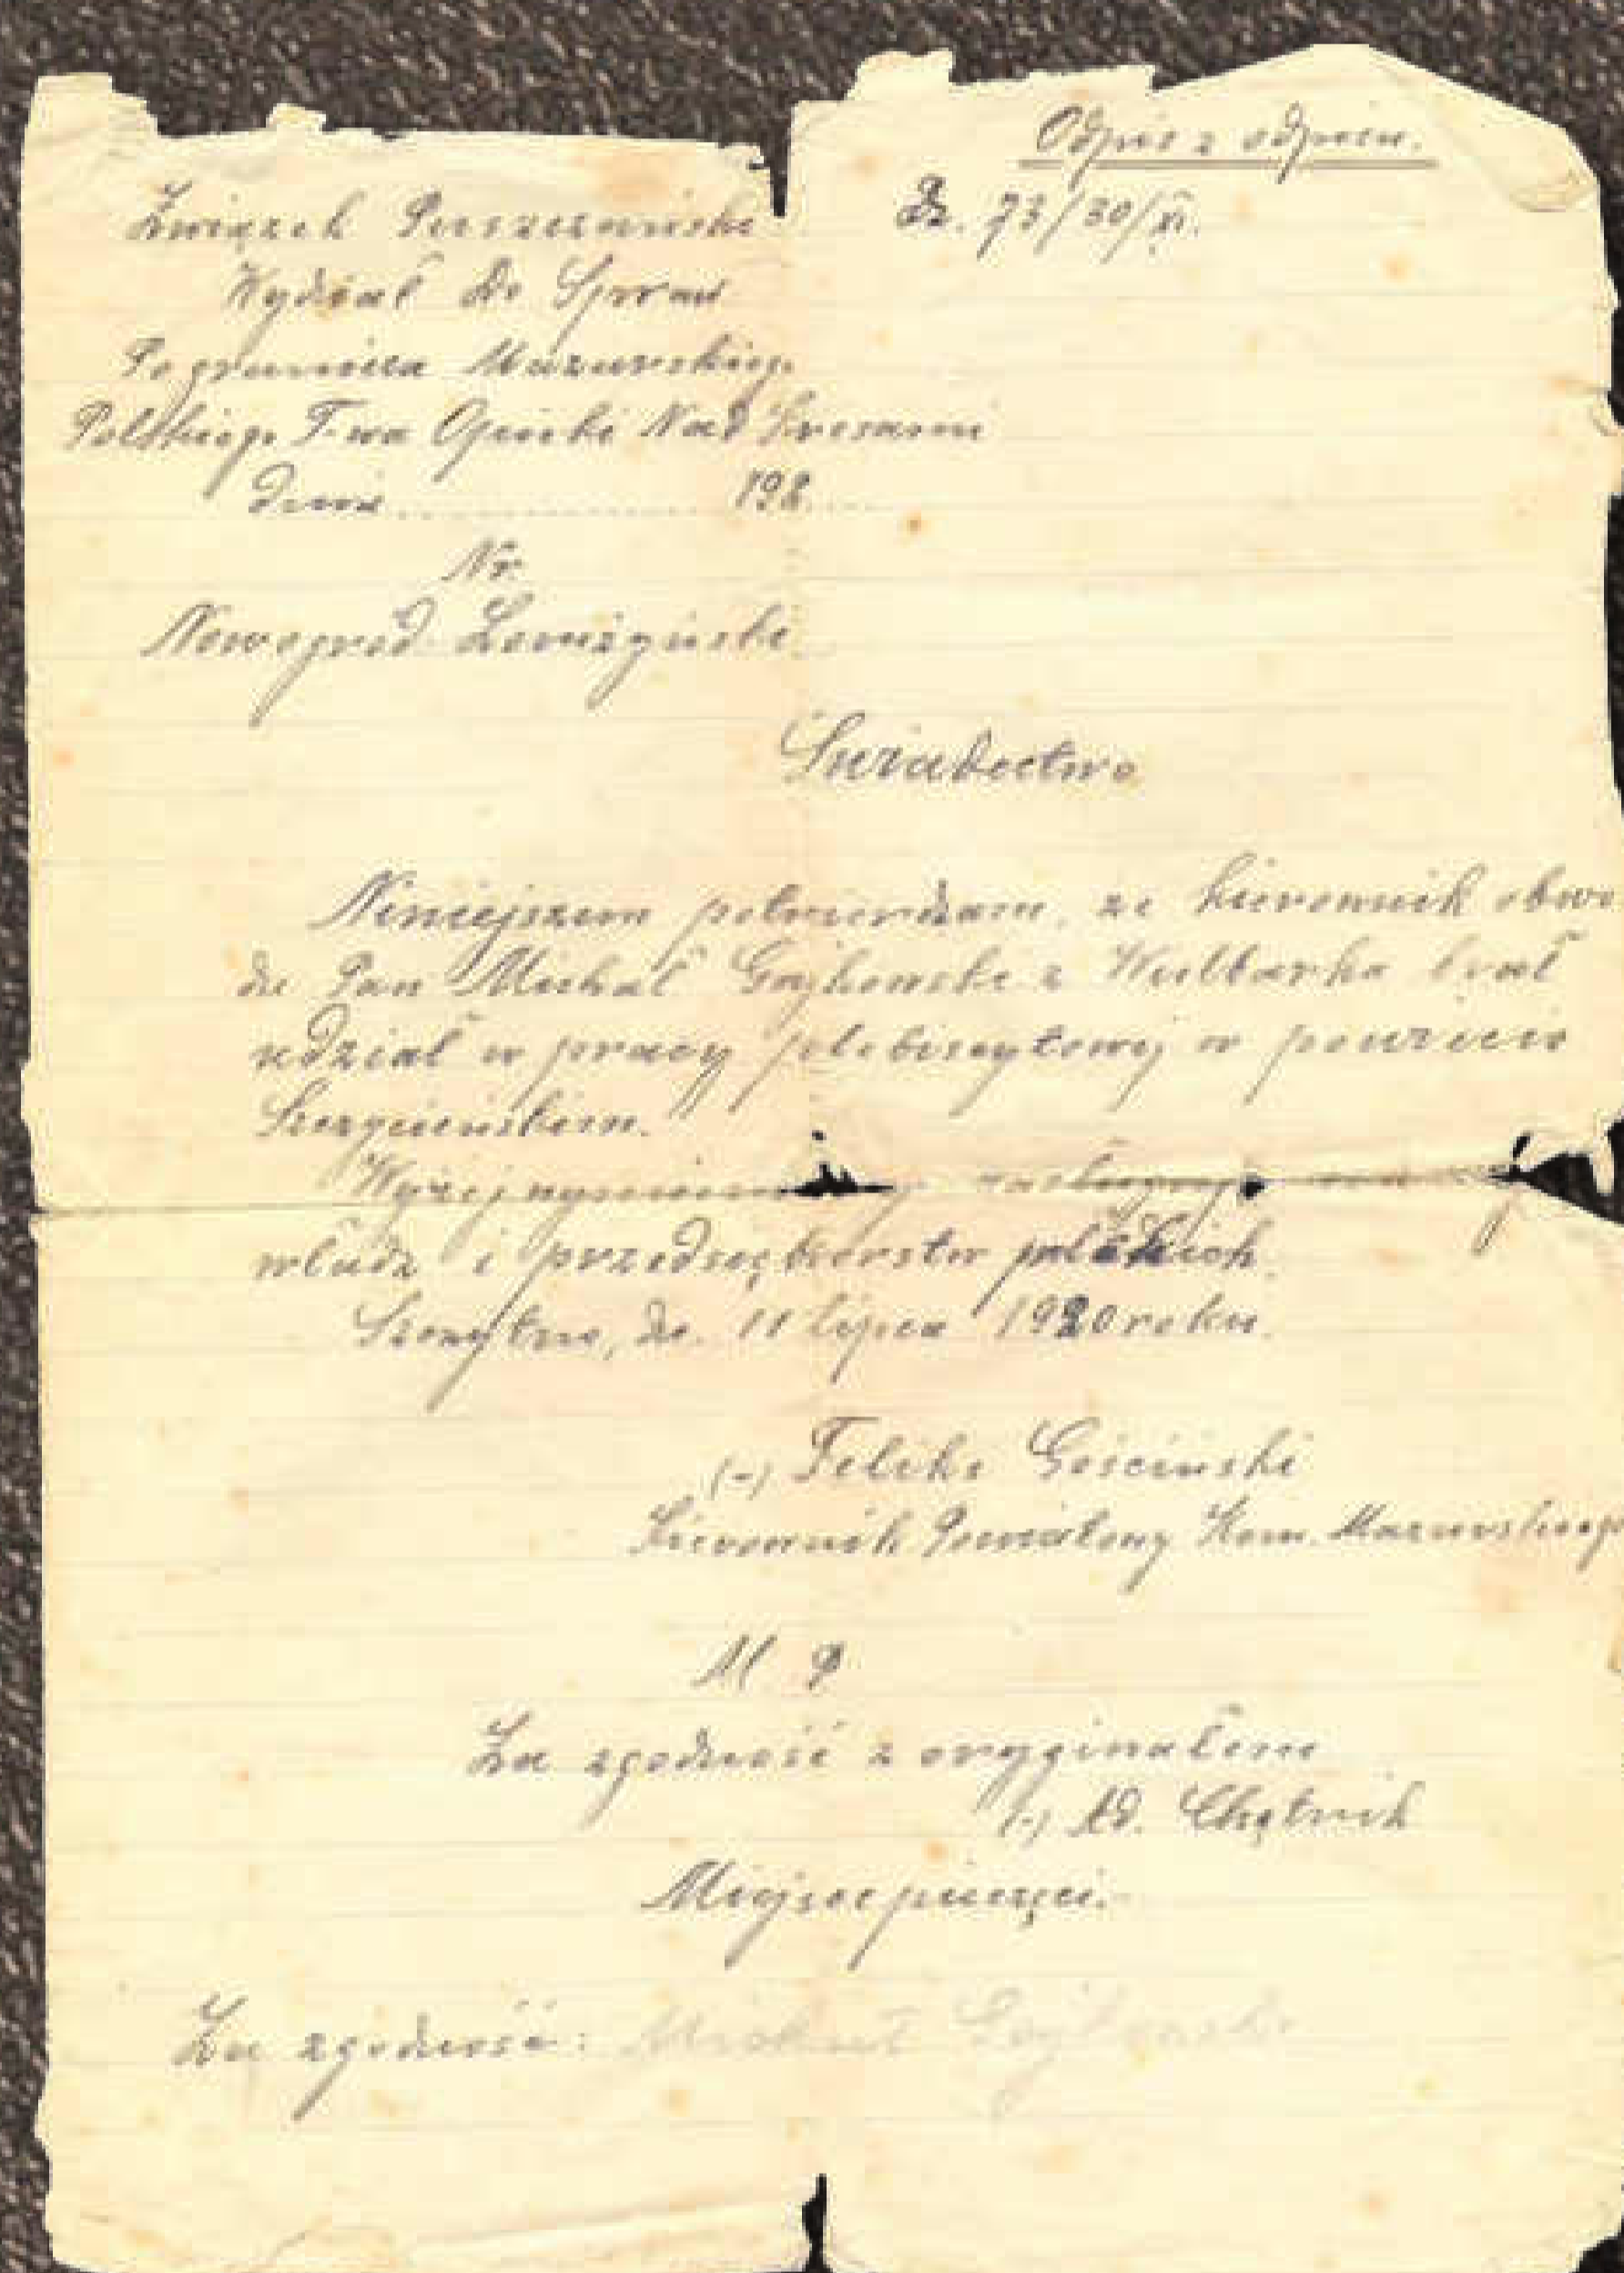 Odpis z odpisu.
Dz. 73/30/XI.
Związek Puszczański
Wydział do Spraw
Pogranicza Mazurskiego
Polskiego T-wa Opieki Nad Kresami
dnia ............ 192....
Nr.
Nowogród Łomżyński.
Świadectwo
Niniejszem potwierdzam, że kierownik obwo
du Pan Michał Gajkowski z Wielbarka brał
udział w pracy plebiscytowej w powiecie
Szczycieńskiem.
Wyżej wymieniony zasługuje na
władz i przedsiębiorstw polskich.
Szczytno, dn. 11 lipca 1920 roku.
(-) Feliks Gościński
Kierownik Powiatowy Kom. Mazurskiego
M P
Za zgodność z oryginałem
(-) Ad. Chętnik
Miejsce pieczęci.
Za zgodność: Michał Gajkowski